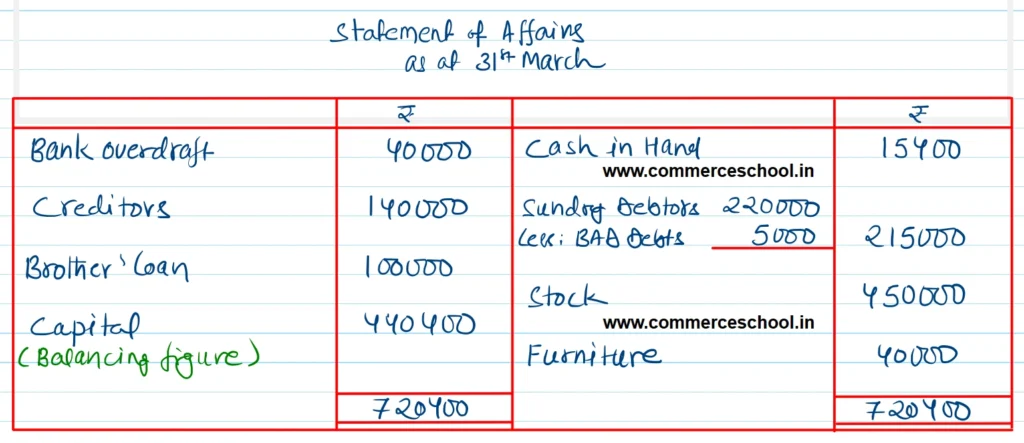 Statement of Affairs
as at 31st March
₹ ₹
Bank overdraft 40000 Cash in Hand 15400
www.commerceschool.in
Creditors 140000 Sundry Debtors 220000
Less: BAD Debts 5000 215000
Brother's Loan 100000
Stock 450000
Capital 440400 www.commerceschool.in
(Balancing figure) Furniture 40000
720400 720400